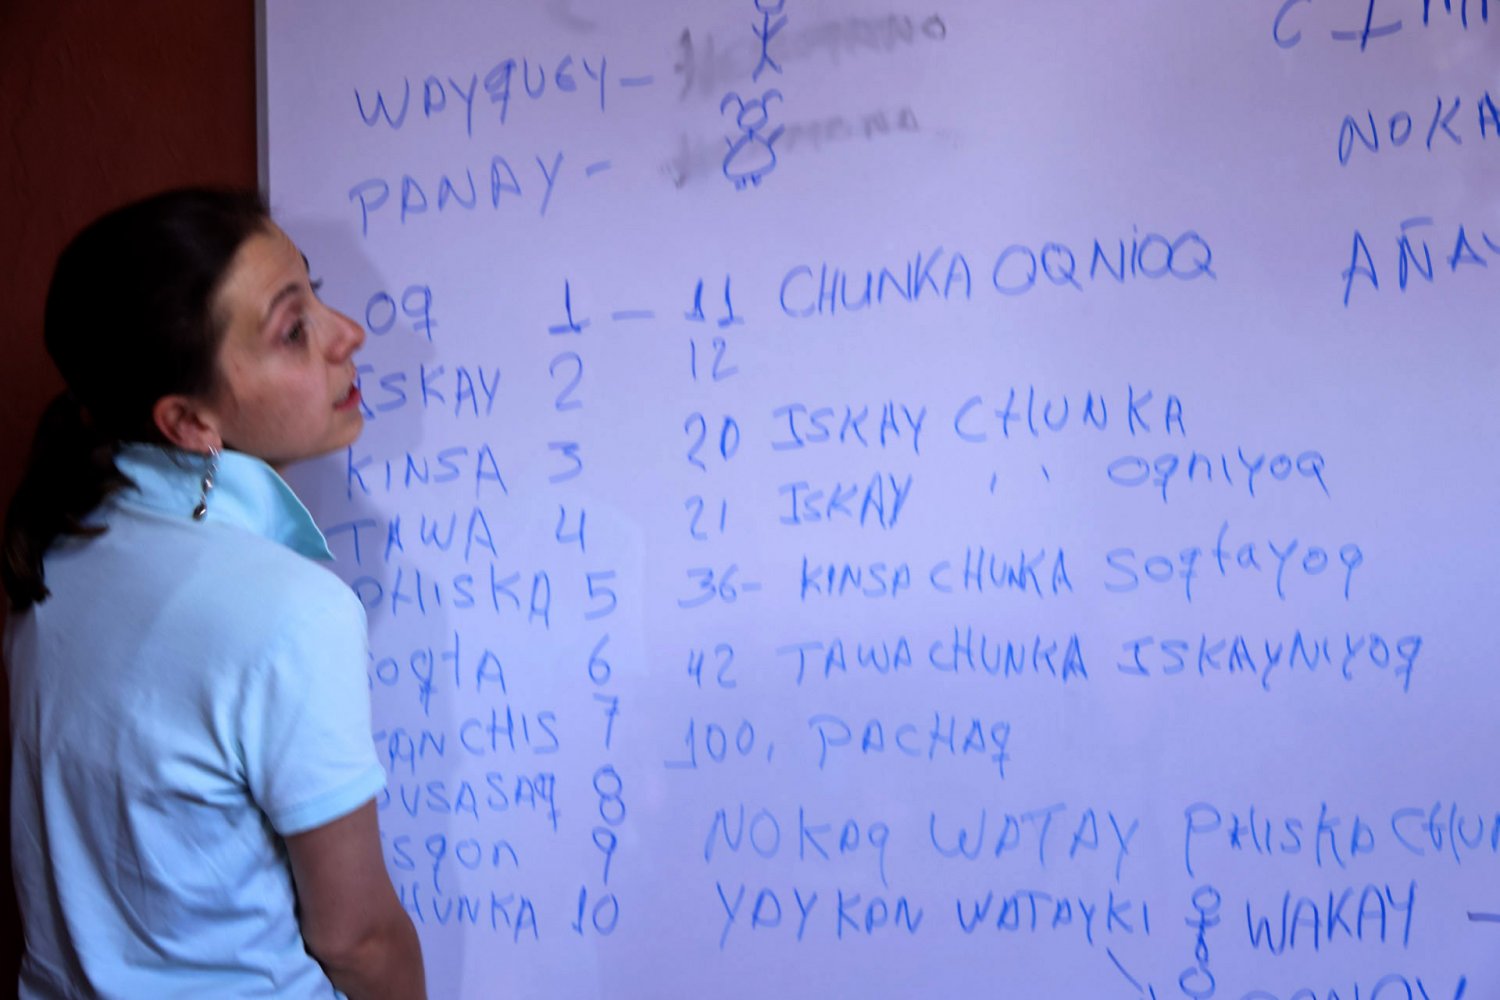 WAYQUEY -
PANAY -
NOKA
AÑAY
OQ 1 - 11 CHUNKA OQNIOQ
ISKAY 2 12
KINSA 3 20 ISKAY CHUNKA
21 ISKAY ' ' OQNIYOQ
TAWA 4
PHISKA 5 36- KINSA CHUNKA SOQtAYOQ
SOQTA 6 42 TAWA CHUNKA ISKAYNIYOQ
QANCHIS 7 100. PACHAQ
PUSASAQ 8
ISQON 9 NOKAQ WATAY PHISKA CHUN
CHUNKA 10 YAYKAN WATAYKI WAKAY -